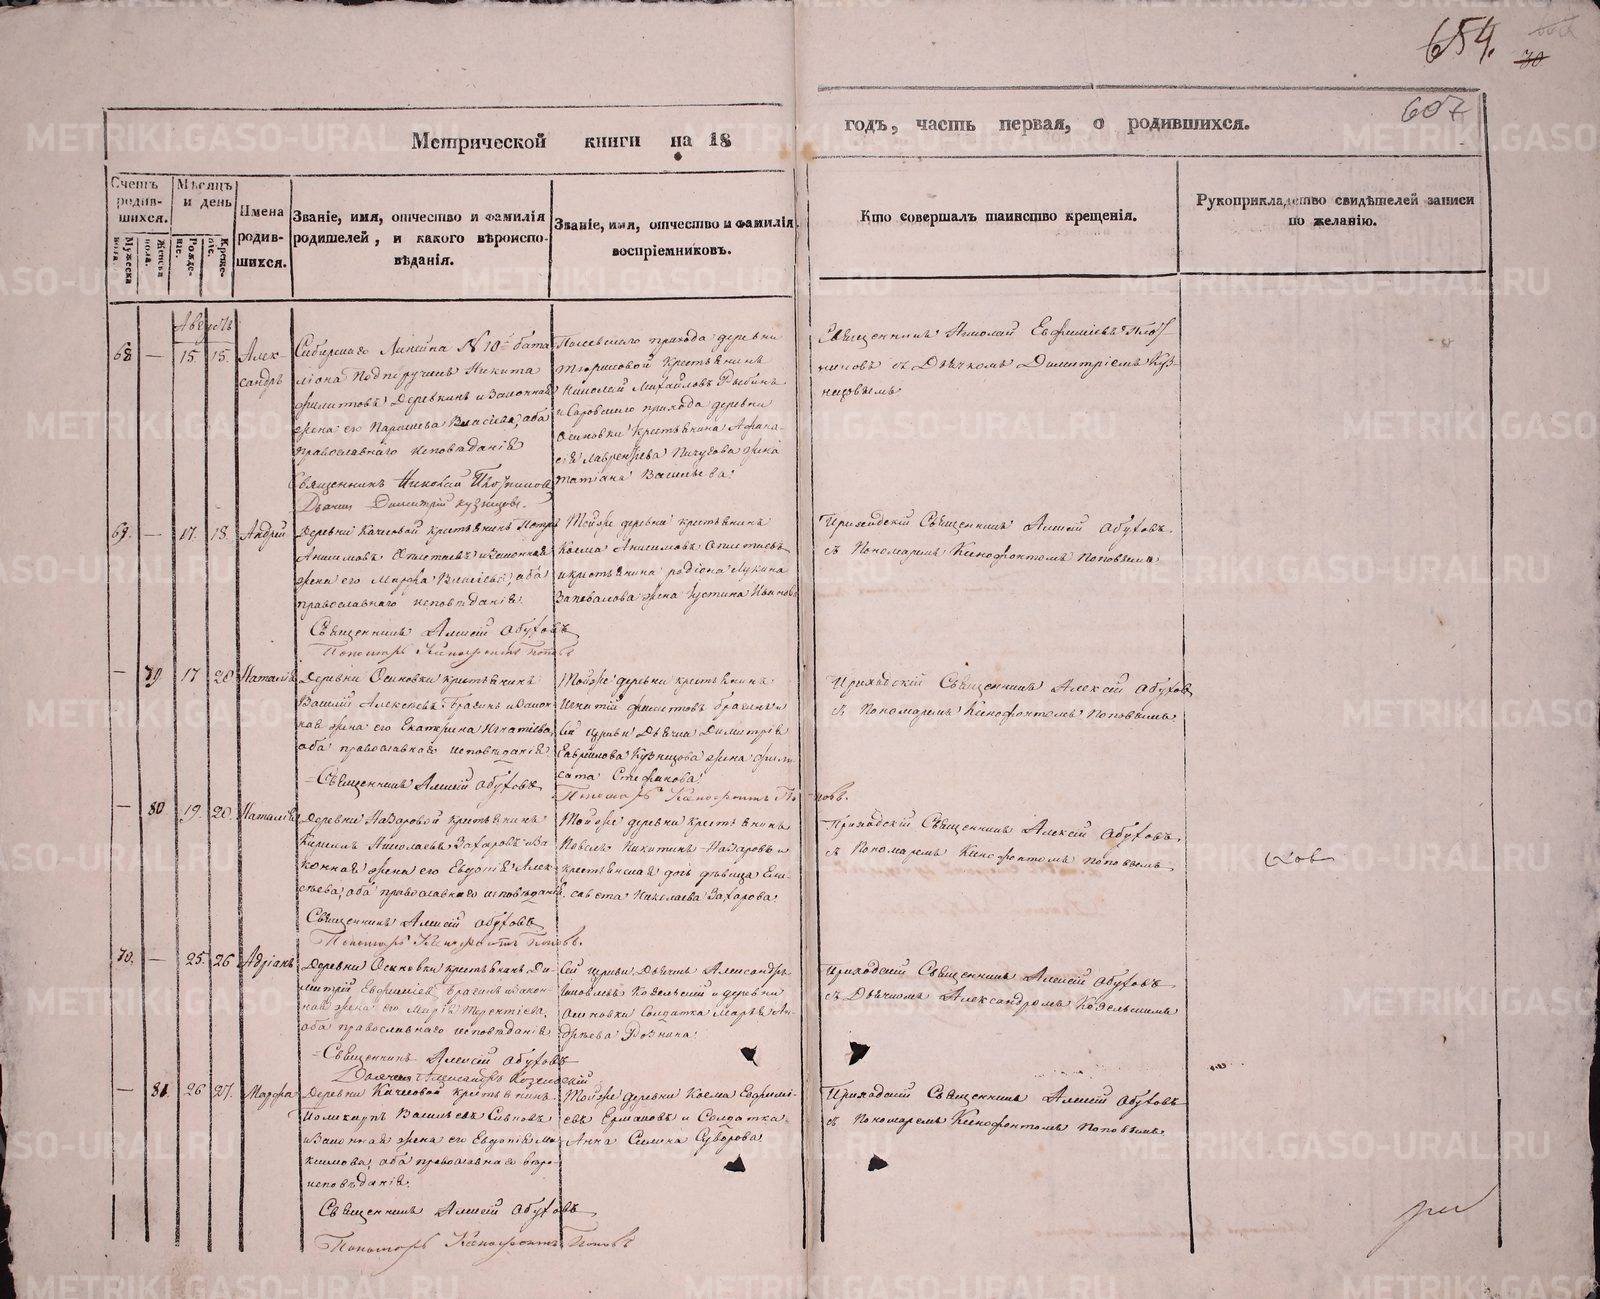 654.
30
607
Метрической книги на 18
годъ, часть первая, о родившихся.
Счетъ родив-шихся.
Мужеска пола.
Женска пола.
Мѣсяцъ и день
Рожде-нія.
Креще-нія.
Имена родив-шихся.
Званіе, имя, отчество и фамилія родителей, и какого вѣроиспо-вѣданія.
Званіе, имя, отчество и фамилія воспріемниковъ.
Кто совершалъ таинство крещенія.
Рукоприкладство свидѣтелей записи по желанію.
Августъ
68 — 15 15. Алек-
сандръ
Сибирскаго Линейна № 10 бата
ліона Подпоручикъ Никита
Филитовъ Деревкинъ и Законная
жена его Парасковья, оба
православнаго исповѣданія
Священникъ Николай
Дьячекъ Димитрій Кузнецовъ.
прихода деревни
Крестьянинъ
Николай Михайловъ Рыбинъ
прихода деревни
Осиновки крестьянина Афана-
сія Лаврентьева Пичугова жена
Татіана Васильева
Священникъ Николай Евфиміевъ
съ Дьячкомъ Димитріемъ Куз-
нецовымъ
69. — 17. 18. Андрей
Деревни крестьянинъ Петръ
Анисимовъ и Законная
жена его Марфа, оба
православнаго исповѣданія.
Священникъ Алексій Абуховъ
Пономарь Ксенофонтъ Поповъ
Тойже деревни крестьянинъ
Козма Анисимовъ
и крестьянина Родіона Лукина
Заповалова жена Устина Иванова
Приходскій Священникъ Алексій Абуховъ
съ Пономаремъ Ксенофонтомъ Поповымъ
— 79 17 20 Наталія
Деревни Осиновки крестьянинъ
Василій Алексѣевъ Брагинъ и Закон-
ная жена его Екатерина Игнатіева,
оба православнаго исповѣданія
Священникъ Алексій Абуховъ
Тойже деревни крестьянинъ
Игнатій Филитовъ Брагинъ и
сей церкви Дьячка Димитрія
Гаврилова Кузнецова жена Фили-
сата Стефанова
Пономарь Ксенофонтъ По-повъ.
Приходскій Священникъ Алексій Абуховъ
съ Пономаремъ Ксенофонтомъ Поповымъ
— 80 19. 20. Наталія
Деревни Назаровой крестьянинъ
Кириллъ Николаевъ Захаровъ и За-
конная жена его Евдокія Алек-
сѣева, оба православнаго исповѣданія.
Священникъ Алексій Абуховъ
Пономарь Ксенофонтъ Поповъ.
Тойже деревни крестьянинъ
Павелъ Никитинъ Назаровъ и
крестьянская дочь дѣвица Ели-
савета Николаева Захарова
Приходскій Священникъ Алексій Абуховъ
съ Пономаремъ Ксенофонтомъ Поповымъ
70. — 25. 26 Адріанъ
Деревни Осиновки крестьянинъ Ди-
митрій Евфиміевъ Брагинъ и закон-
ная жена его Марія Терентіева,
оба православнаго исповѣданія
Священникъ Алексій Абуховъ
Дьячекъ Александръ Козельскій
Сей церкви Дьячекъ Александръ
Яковлевъ Козельскій и деревни
Осиновки Солдатка Марѳа Ан-
дреева Рознина
Приходскій Священникъ Алексій Абуховъ
съ Дьячкомъ Александромъ Козельскимъ
— 81. 26 27. Марфа
Деревни крестьянинъ
Поликарпъ Васильевъ Сивковъ
и Законная жена его Евдокія Ма-
ксимова, оба православнаго вѣро-
исповѣданія.
Священникъ Алексій Абуховъ
Пономарь Ксенофонтъ Поповъ
Тойже деревни Козма Евфимі-
евъ Ермаковъ и Солдатка
Анна Силина Суворова
Приходскій Священникъ Алексій Абуховъ
съ Пономаремъ Ксенофонтомъ Поповымъ
METRIKI.GASO-URAL.RU